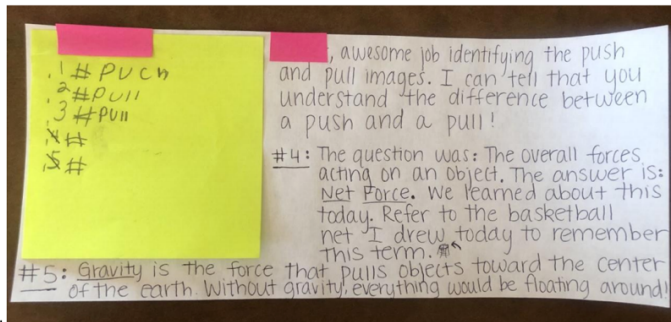 .1 # PUCH
.2 # PUll
.3 # PUll
4 #
5 #
, awesome job identifying the push
and pull images. I can tell that you
understand the difference between
a push and a pull!
#4: The question was: The overall forces
acting on an object. The answer is:
Net Force. We learned about this
today. Refer to the basketball
net I drew today to remember
this term.
#5: Gravity is the force that pulls objects toward the center
of the earth. Without gravity, everything would be floating around!